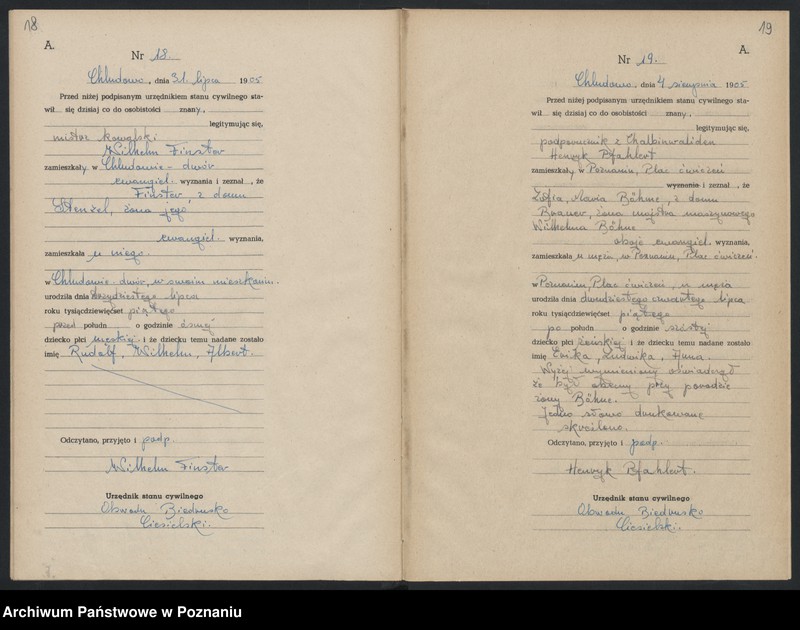 18
A.
Nr 18.
Chludowo, dnia 31. lipca 1905
Przed niżej podpisanym urzędnikiem stanu cywilnego sta-
wił się dzisiaj co do osobistości znany,
legitymując się,
mistrz kowalski
Wilhelm Finster
zamieszkały w Chludowie - dwór
ewangiel. wyznania i zeznał, że
Finster z domu
Stenzel, żona jego
ewangiel. wyznania,
zamieszkała u niego.
w Chludowie dwór, w swoim mieszkaniu.
urodziła dnia trzydziestego lipca
roku tysiącdziewięćset piątego
przed połudn. o godzinie ósmej
dziecko płci męskiej i że dziecku temu nadane zostało
imię Rudolf, Wilhelm, Albert.
Odczytano, przyjęto i podp.
Wilhelm Finster
Urzędnik stanu cywilnego
Obwodu Biedrusko
Ciesielski.
19
A.
Nr 19.
Chludowo, dnia 4 sierpnia 1905
Przed niżej podpisanym urzędnikiem stanu cywilnego sta-
wił się dzisiaj co do osobistości znany,
legitymując się,
podporucznik z
Henryk Pfahlert
zamieszkały w Poznaniu, Plac ćwiczeń
wyznania i zeznał, że
Zofia, Maria Böhme, z domu
żona majstra maszynowego
Wilhelma Böhme
oboje ewangiel. wyznania,
zamieszkała u męża, w Poznaniu, Plac ćwiczeń.
w Poznaniu, Plac ćwiczeń, u męża
urodziła dnia dwudziestego czwartego lipca
roku tysiącdziewięćset piątego
po połudn. o godzinie szóstej
dziecko płci żeńskiej i że dziecku temu nadane zostało
imię Erika, Ludwika, Anna.
Wyżej wymieniony oświadczył
że był obecny przy porodzie
żony Böhme.
Jedno słowo drukowane
skreślono.
Odczytano, przyjęto i podp.
Henryk Pfahlert.
Urzędnik stanu cywilnego
Obwodu Biedrusko
Ciesielski.
Archiwum Państwowe w Poznaniu